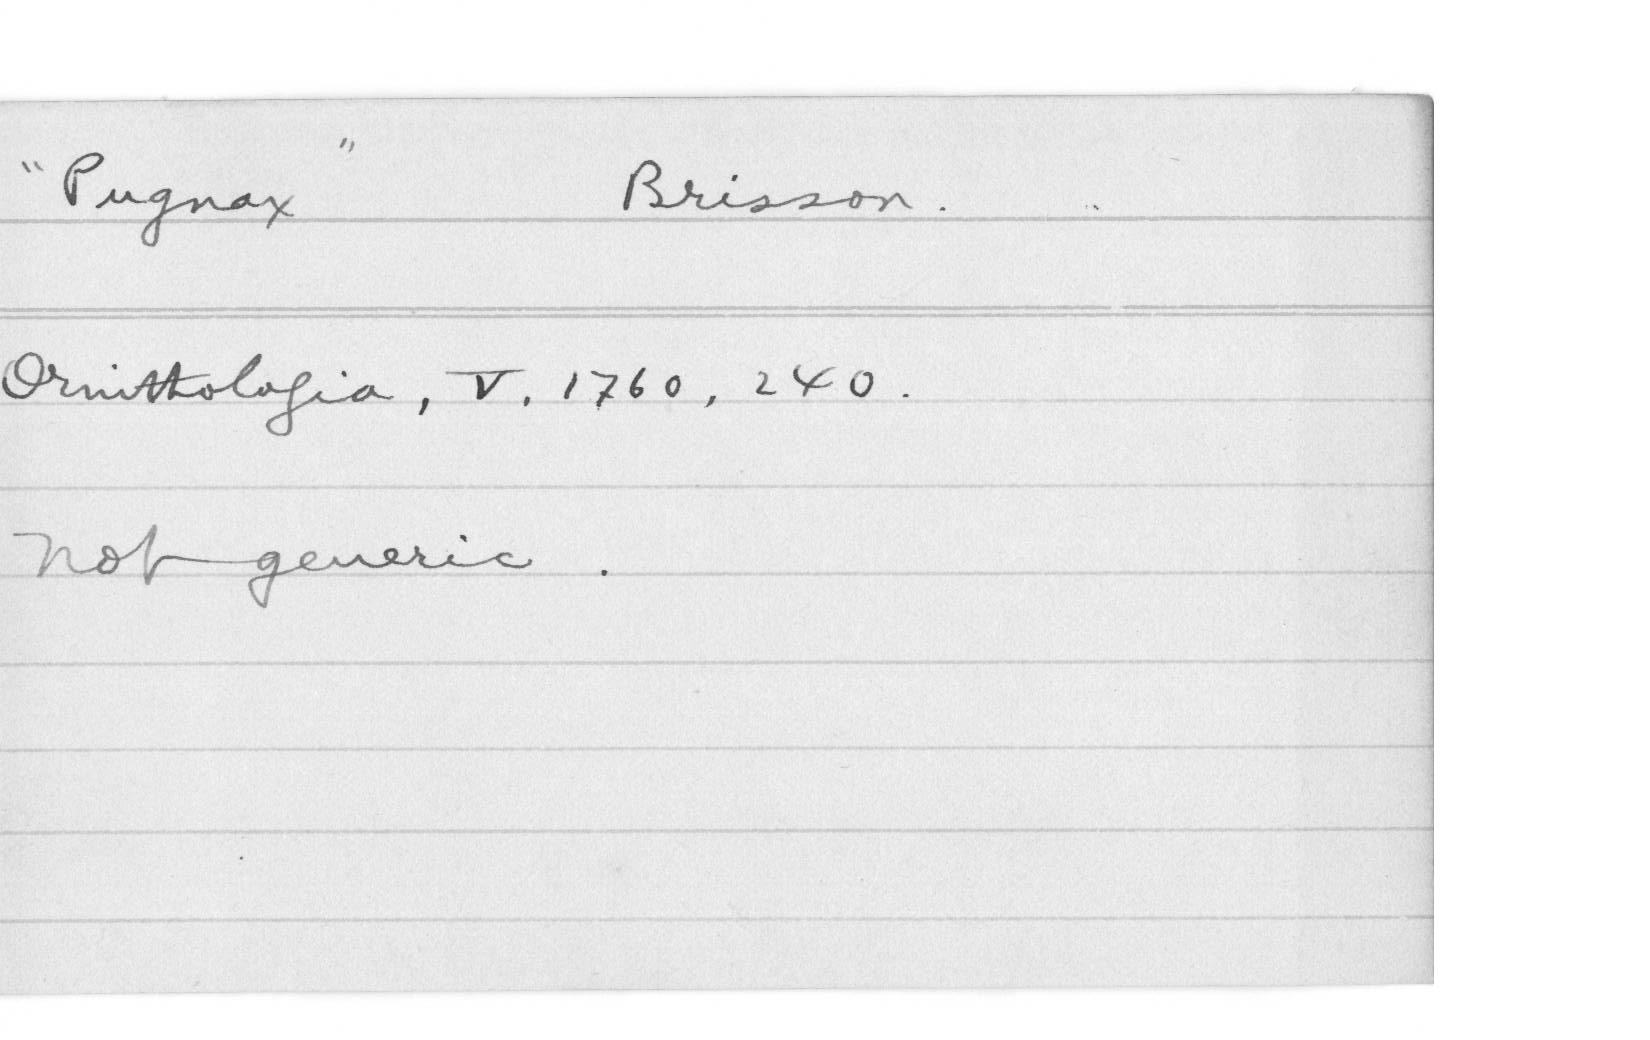 "Pugnax" Brisson.
Ornithologia, V. 1760, 240.
not generic.